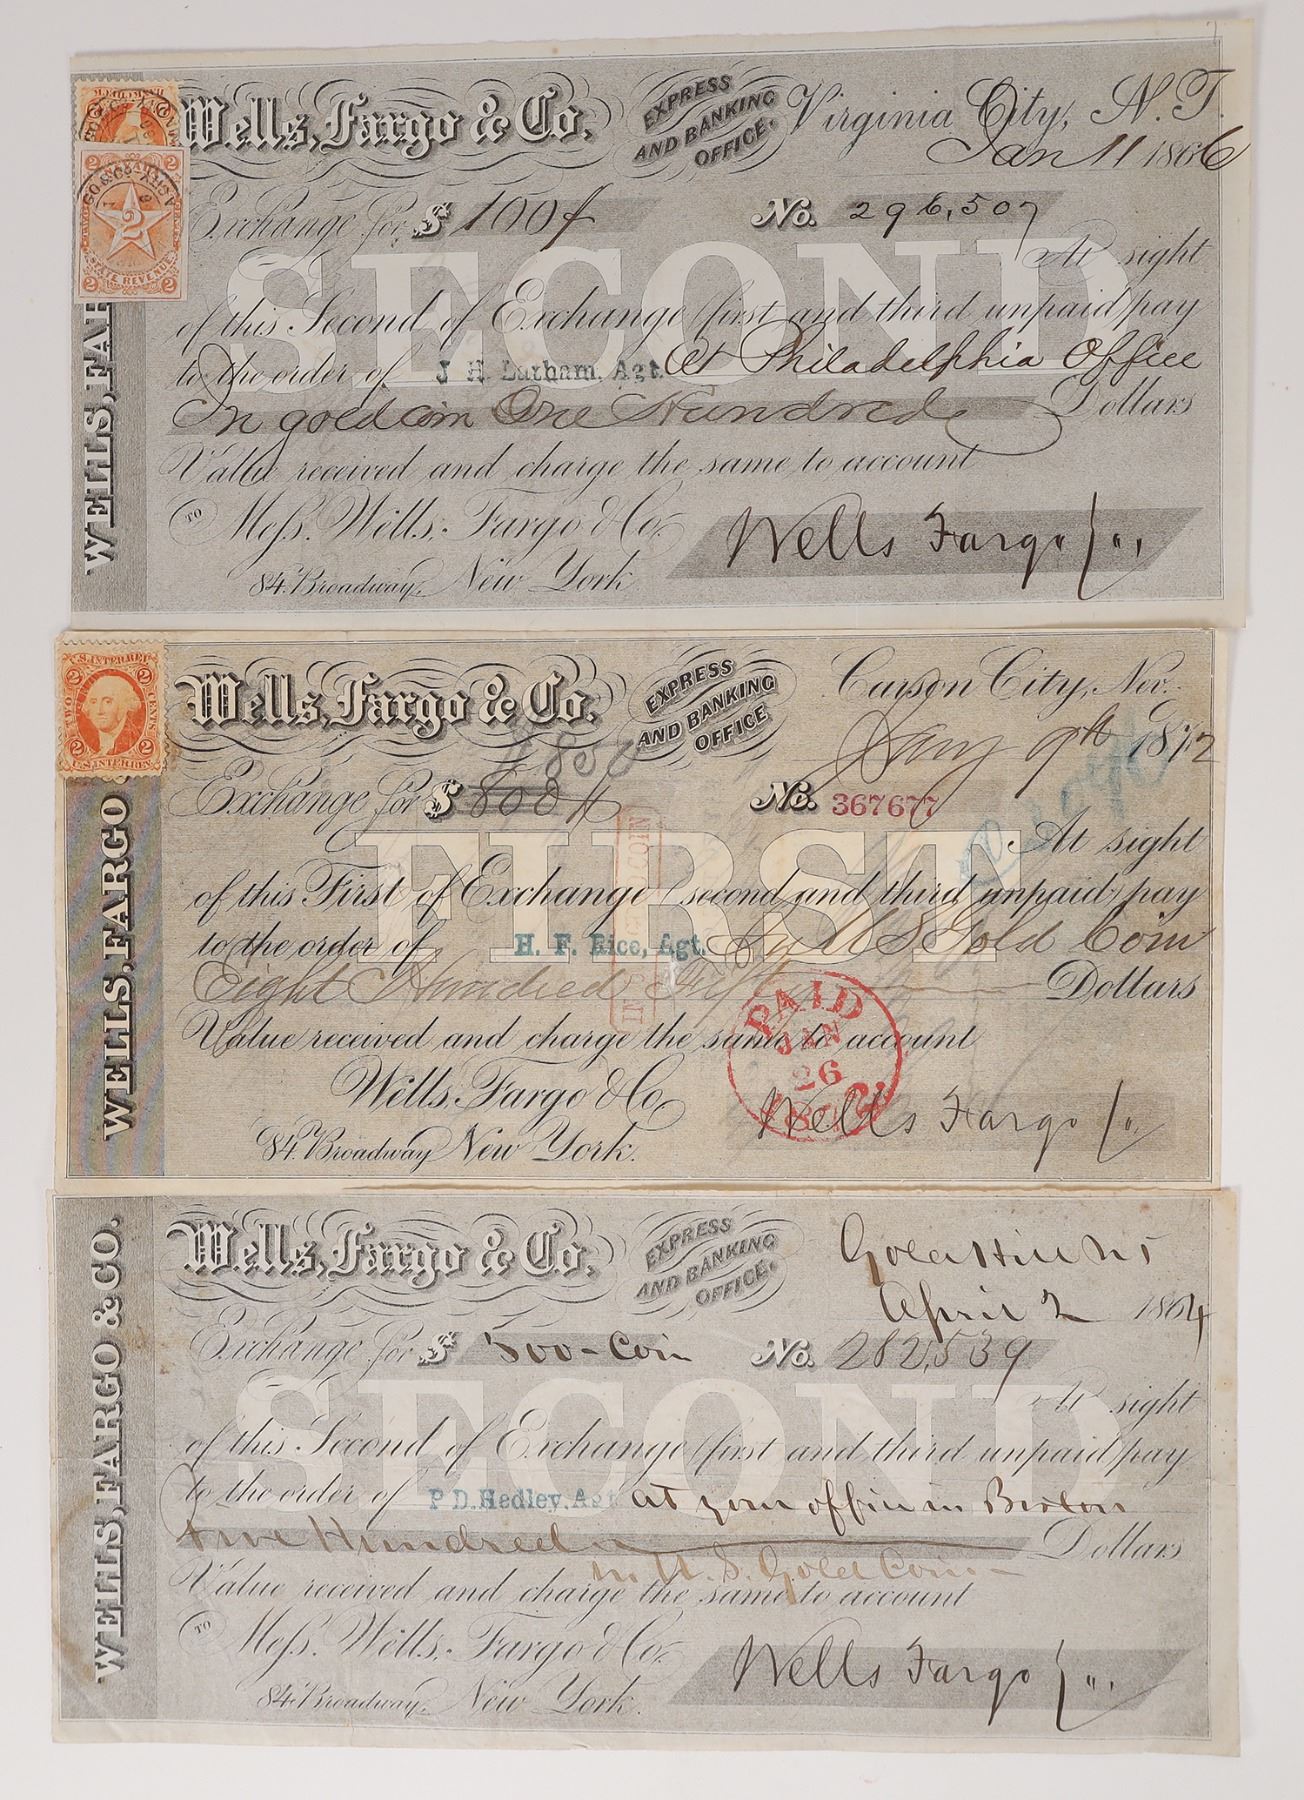 Wells, Fargo & Co.
EXPRESS AND BANKING OFFICE.
Virginia City, N.T.
Jan 11 1866
2 2
STATE REVENUE
2 2
Exchange for $ 100 No. 296,507
SECOND
At sight
of this Second of Exchange (first and third unpaid) pay
to the order of J. H. Latham, Agt. At Philadelphia Office
In gold coin One Hundred Dollars
Value received and charge the same to account
TO Mess. Wells, Fargo & Co.
84 Broadway, New York.
Wells Fargo & Co.
WELLS, FAR
U.S. INTER. REV.
2 2
TWO CENTS
2 2
U.S. INTER. REV.
Wells, Fargo & Co.
EXPRESS AND BANKING OFFICE
Carson City, Nev.
Jany 9th 1872
850
Exchange for $ 800 No. 367677
FIRST
At sight
of this First of Exchange (second and third unpaid) pay
to the order of H. F. Rice, Agt. In U S Gold Coin
Eight Hundred Fifty Dollars
Value received and charge the same to account
PAID
JAN
26
1872
Wells, Fargo & Co.
84 Broadway New York.
Wells Fargo & Co.
WELLS, FARGO
Wells, Fargo & Co.
EXPRESS AND BANKING OFFICE.
Gold Hill N T
April 2 1864
Exchange for $ 500 - Coin No. 282,539
SECOND
At sight
of this Second of Exchange (first and third unpaid) pay
to the order of P. D. Hedley, Agt at your office in Boston
five Hundred Dollars
in U. S. Gold Coin
Value received and charge the same to account
TO Mess. Wells, Fargo & Co.
84 Broadway, New York.
Wells Fargo & Co.
WELLS, FARGO & CO.